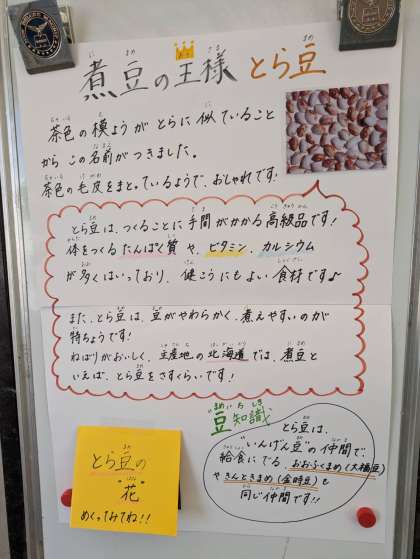 煮豆の王様 とら豆
茶色の模ようがとらに似ていること
からこの名前がつきました。
茶色の毛皮をまとっているようで、おしゃれです!
とら豆は、つくることに手間がかかる高級品です!
体をつくるたんぱく質や、ビタミン、カルシウム
が多くはいっており、健こうにもよい食材です♪
また、とら豆は、豆がやわらかく、煮えやすいのが
特ちょうです!
ねばりがおいしく、生産地の北海道では、煮豆と
いえば、とら豆をさすくらいです!
豆知識
とら豆は、
"いんげん豆"の仲間で、
給食にでる、おおふくまめ(大福豆)
やきんときまめ(金時豆)も
同じ仲間です!!
とら豆の
"花"
めくってみてね!!